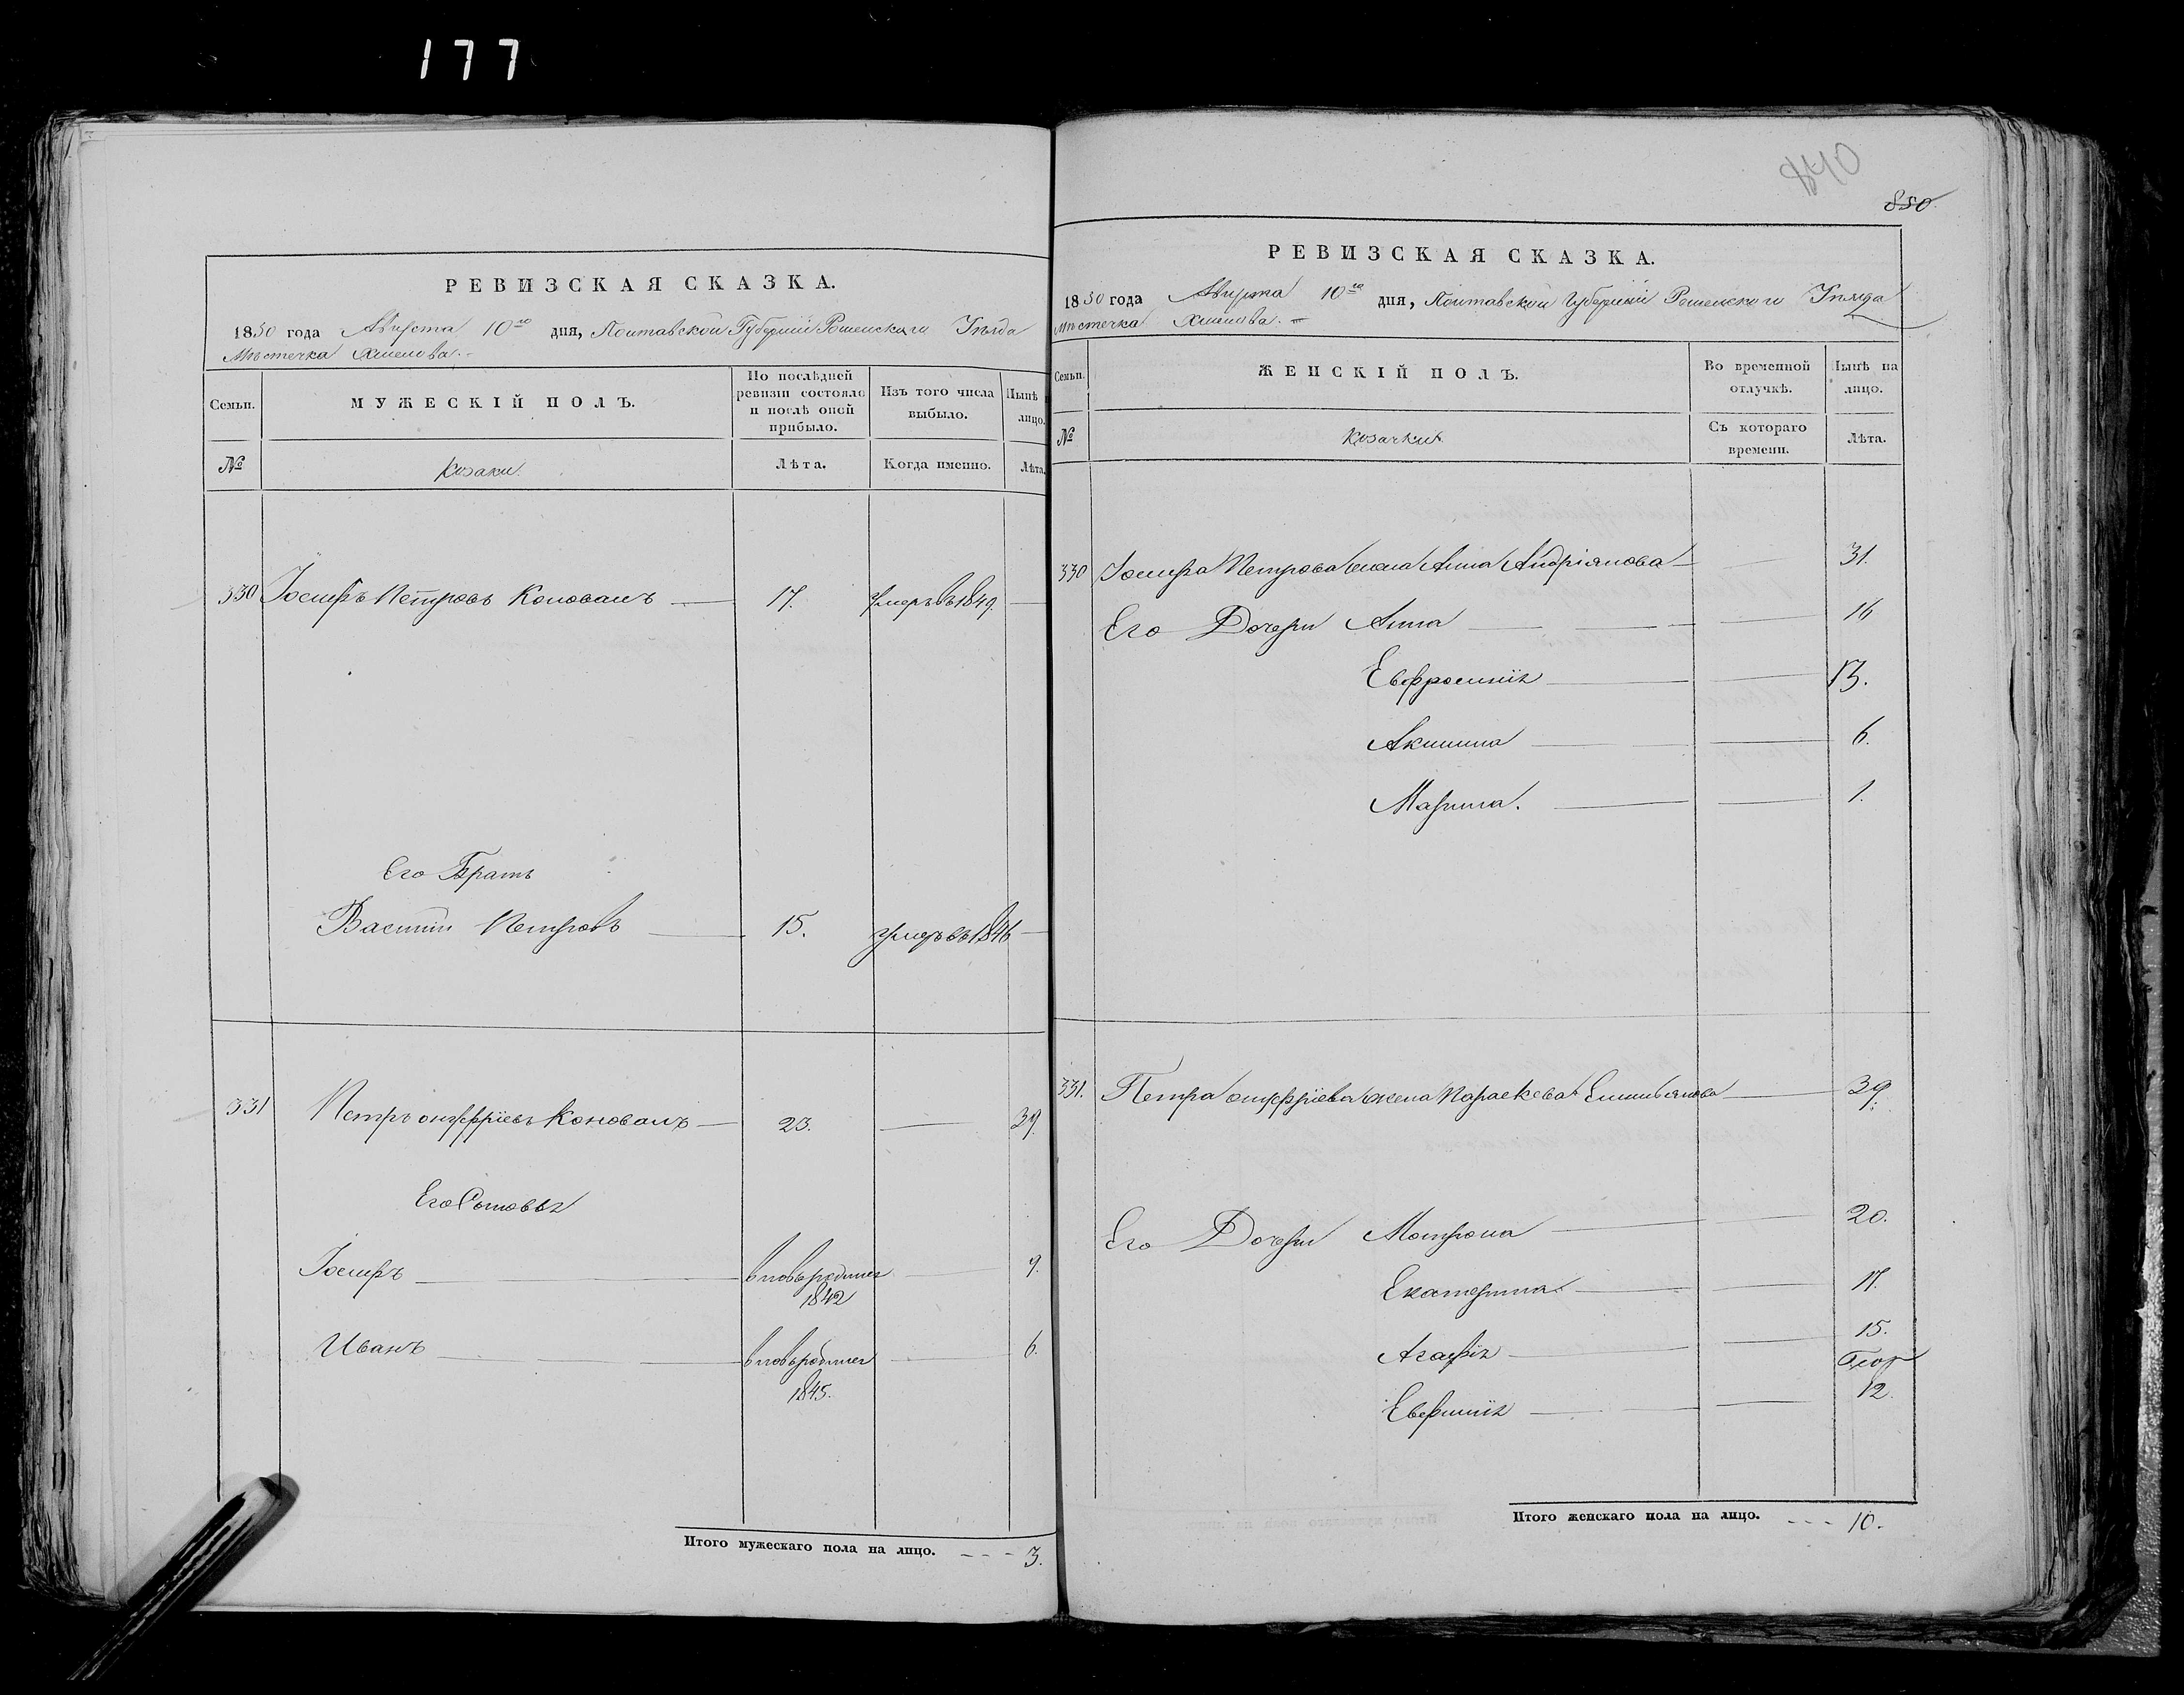 177
РЕВИЗСКАЯ СКАЗКА.
1850 года Августа 10го дня, Полтавской Губерніи Роменскаго Уѣзда
Мѣстечка Хмелова.
Семьи.
МУЖЕСКІЙ ПОЛЪ.
По послѣдней ревизіи состояло и послѣ оной прибыло.
Изъ того числа выбыло.
Нынѣ
лицо.
№
Козаки.
Лѣта.
Когда именно.
Лѣта.
330 Іосифъ Петровъ Коновалъ 17. умеръ въ 1849.
Его Братъ
Василій Петровъ 15. умеръ въ 1846
331 Петръ Онуфріевъ Коновалъ 23. 39.
Его Сыновья
Іосифъ вновьродился 9.
1842
Иванъ вновьродился 6.
1845.
Итого мужескаго пола на лицо. 3.
840
850.
РЕВИЗСКАЯ СКАЗКА.
1850 года Августа 10го дня, Полтавской Губерніи Роменскаго Уѣзда
Мѣстечка Хмелова.
Семьи.
ЖЕНСКІЙ ПОЛЪ.
Во временной отлучкѣ.
Нынѣ на лицо.
№
Козачки.
Съ котораго времени.
Лѣта.
330 Іосифа Петрова жена Анна Андріянова 31.
Его Дочери Анна 16
Евфросинія 13.
Акилина 6.
Марина. 1.
331. Петра Онуфріева жена Параскева Емельянова 39.
Его Дочери Мотрона 20.
Екатерина. 17.
Агафія 15.
Евфимія 12.
Итого женскаго пола на лицо. 10.